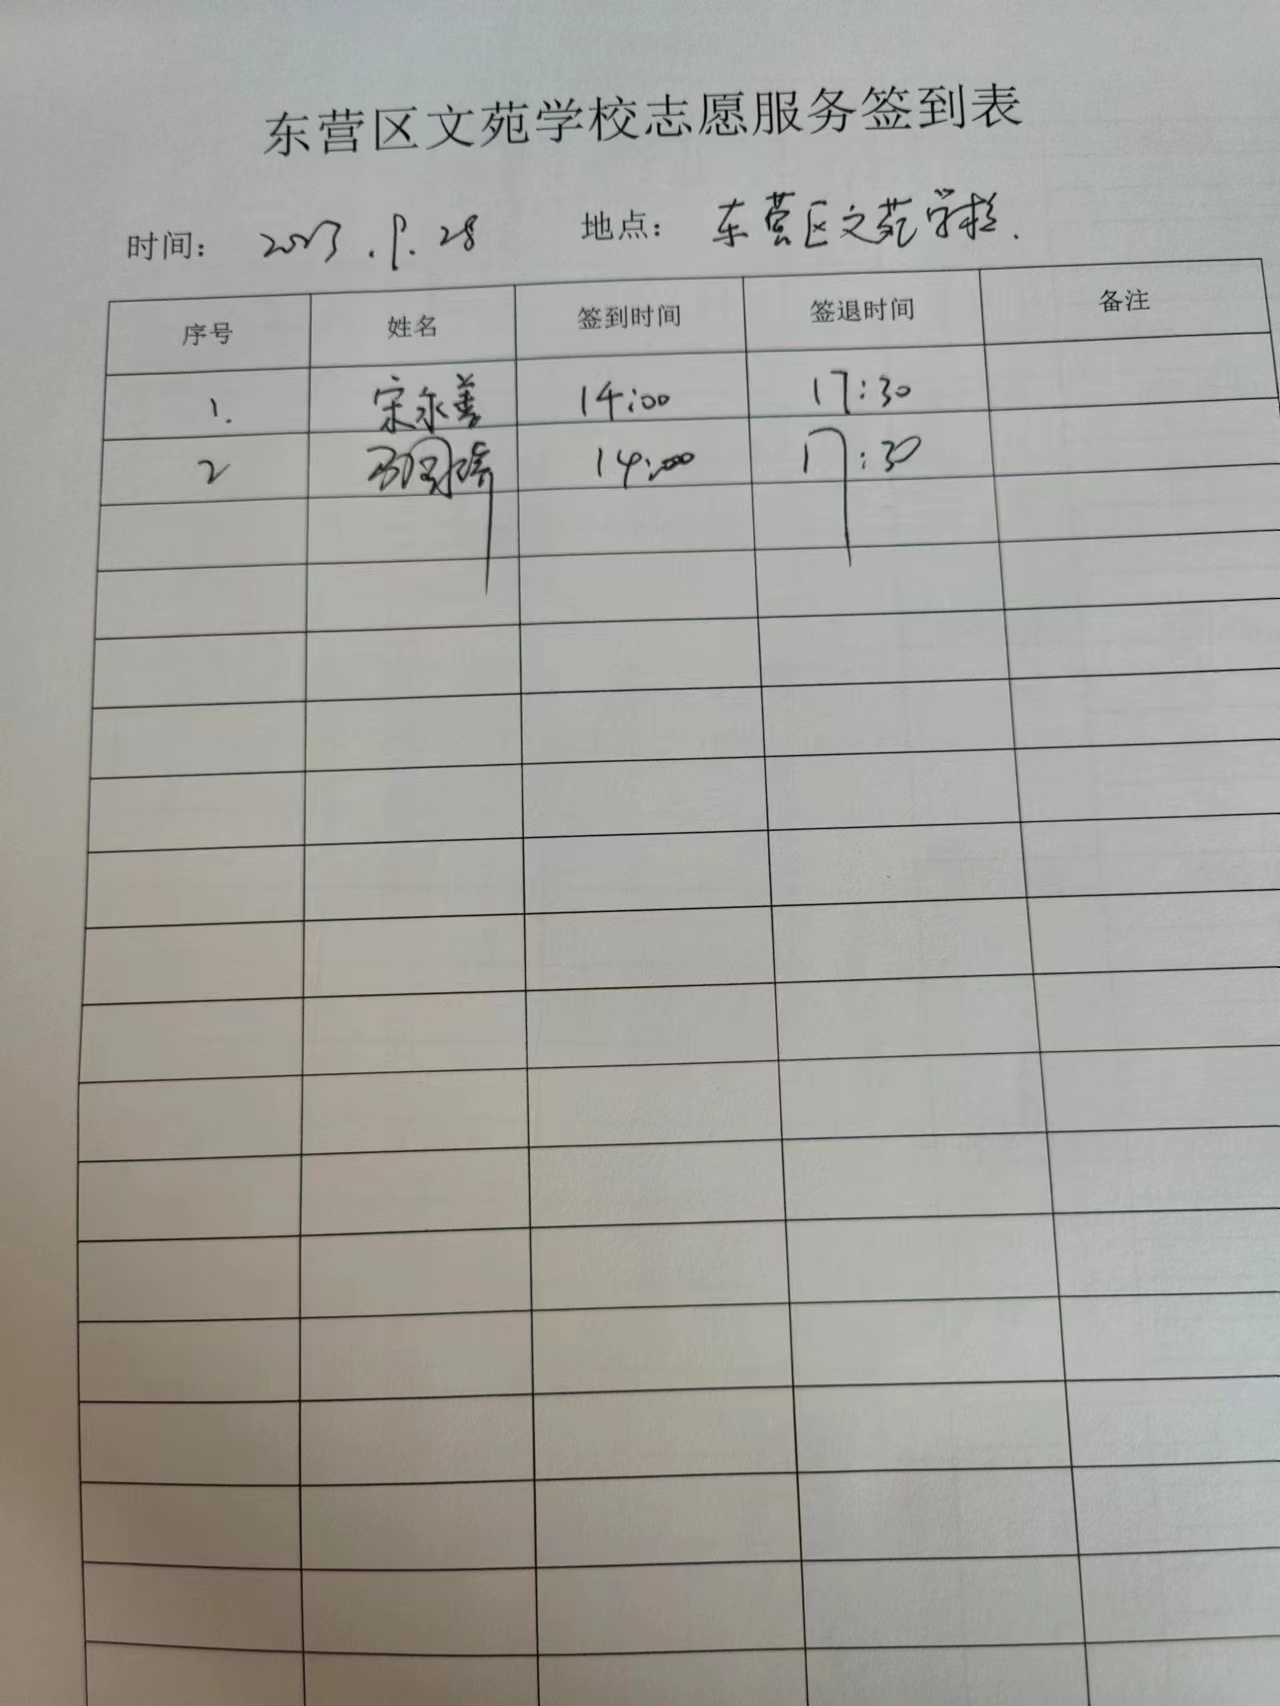 东营区文苑学校志愿服务签到表
时间: 2023.9.28 地点: 东营区文苑学校.
序号 姓名 签到时间 签退时间 备注
1. 宋永善 14:00 17:30
2 14:00 17:30